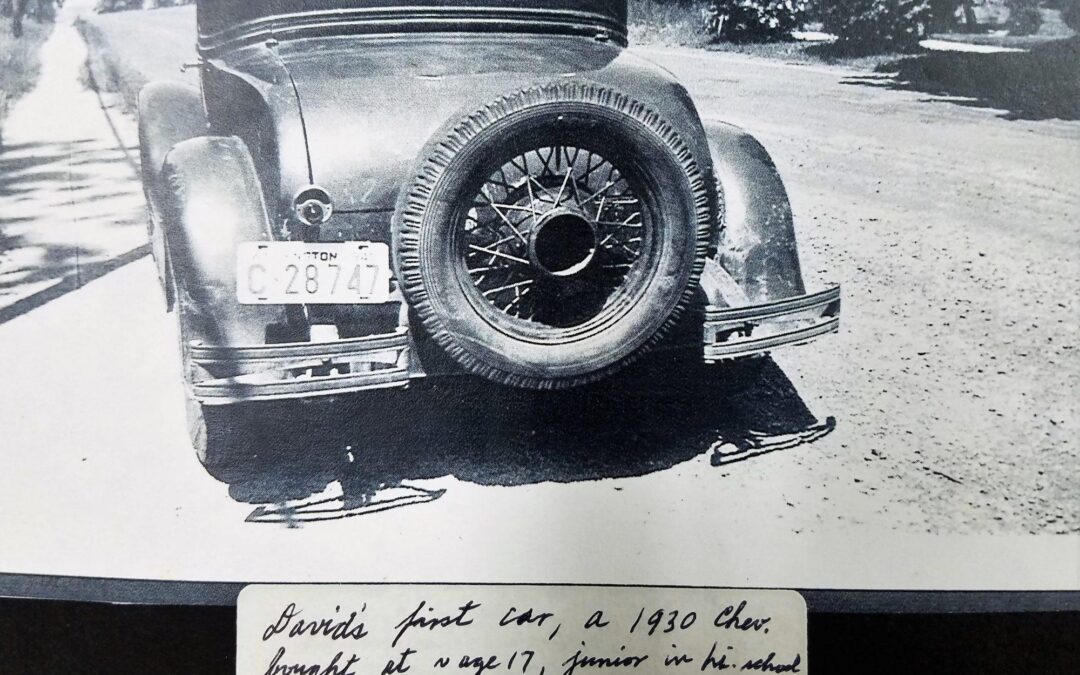 C·28 747
David's first car, a 1930 Chev.
bought at age 17, junior in hi. school